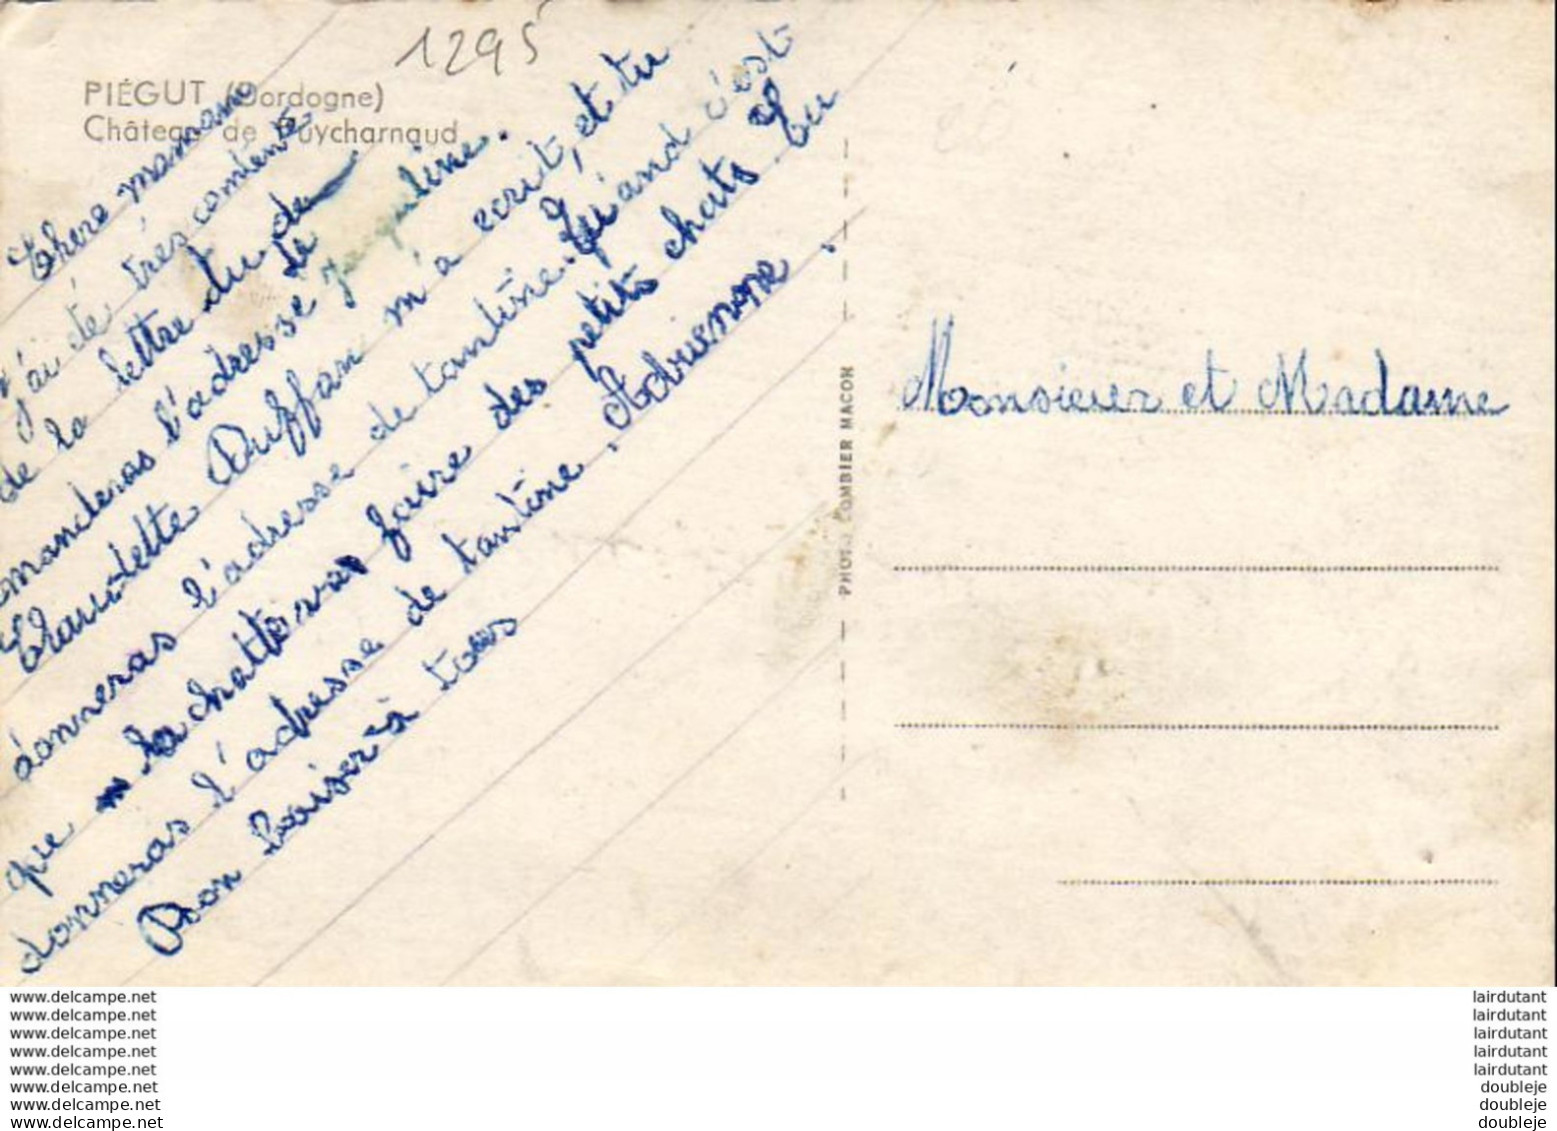 1295
PIÉGUT (Dordogne)
Château de Puycharnaud
Chère maman
j'ai été très contente
de la lettre du de
manderas l'adresse de jacquline.
Claudette Duffan m'a ecrit, et tu
donneras l'adresse de tantine. Qu'and c'est
que la chatte vas faire des petits chats. Tu
donneras l'adresse de tantine, Adrienone.
Bon baiser à tous
PHOTO COMBIER MACON
Monsieur et Madame
www.delcampe.net
www.delcampe.net
www.delcampe.net
www.delcampe.net
www.delcampe.net
www.delcampe.net
www.delcampe.net
www.delcampe.net
lairdutant
lairdutant
lairdutant
lairdutant
lairdutant
doubleje
doubleje
doubleje